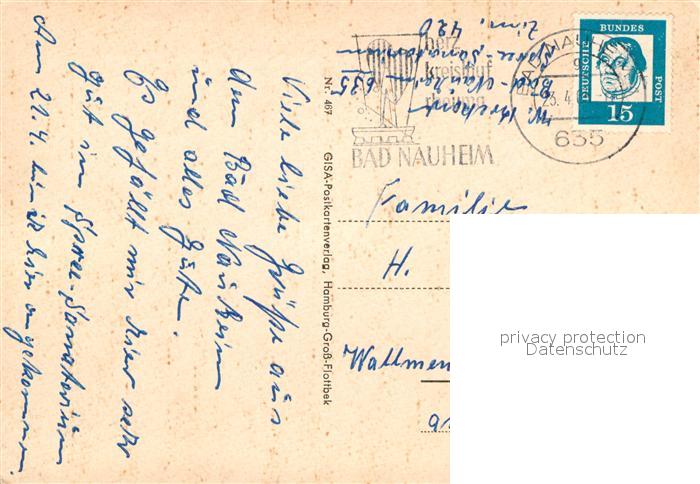 Viele liebe Grüße aus
dem Bad Nauheim
und alles Gute.
Es gefällt mir hier sehr
gut im Spree-Sanatorium
Am 21.4. bin ich hier angekommen.
Nr. 467
GISA-Postkartenverlag, Hamburg-Groß-Flottbek
W.
635 Bad-Nauheim
Sanatorium
Zim. 420
herz
kreislauf
rheuma
BAD NAUHEIM
23.4.
635
DEUTSCHE
BUNDES
POST
15
Familie
H.
privacy protection
Datenschutz